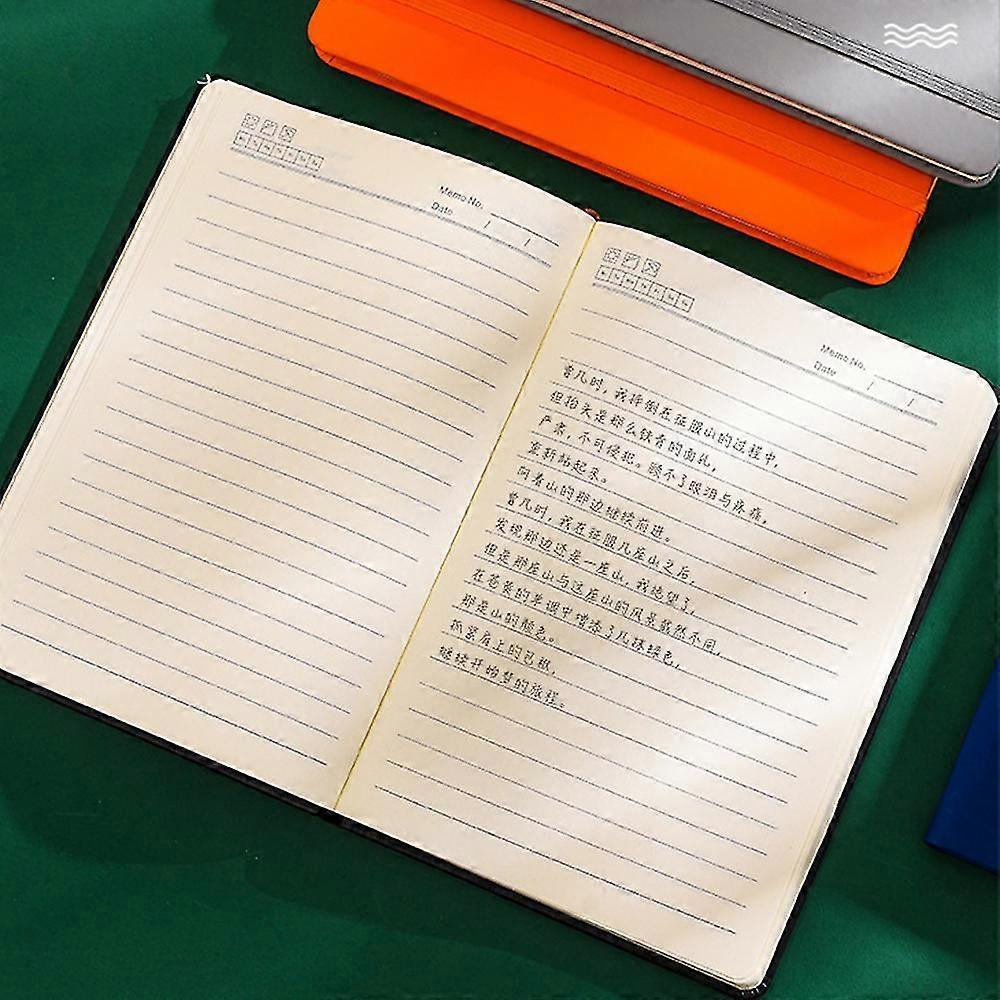 Memo No.
Date / /
Memo No.
Date / /
曾几时，我摔倒在征服山的过程中，
但抬头是那么铁青的面孔，
严肃，不可侵犯。顾不了眼泪与疼痛，
重新站起来。
向着山的那边继续前进。
曾几时，我在征服几座山之后，
发现那边还是一座山，我绝望了，
但是那座山与这座山的风景截然不同，
在苍黄的单调中增添了几抹绿色，
那是山的颜色。
抓紧肩上的已椒，
继续开始梦的旅程。